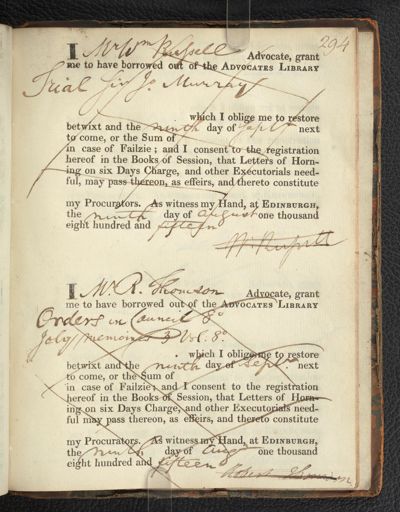 294
I Mr Wm Russell Advocate, grant
me to have borrowed out of the ADVOCATES LIBRARY
Trial Sir Jo. Murray
which I oblige me to restore
betwixt and the ninth day of Septr next
to come, or the Sum of
in case of Failzie; and I consent to the registration
hereof in the Books of Session, that Letters of Horn-
ing on six Days Charge, and other Executorials need-
ful, may pass thereon, as effeirs, and thereto constitute
my Procurators. As witness my Hand, at EDINBURGH,
the ninth day of August one thousand
eight hundred and fifteen
W Russell
I Mr R. Thomson Advocate, grant
me to have borrowed out of the ADVOCATES LIBRARY
Orders in Council 8o
Joly memoires 3 Vol. 8o
which I oblige me to restore
betwixt and the ninth day of Septr next
to come, or the Sum of
in case of Failzie; and I consent to the registration
hereof in the Books of Session, that Letters of Horn-
ing on six Days Charge, and other Executorials need-
ful may pass thereon, as effeirs, and thereto constitute
my Procurators. As witness my Hand, at EDINBURGH,
the ninth day of Augt one thousand
eight hundred and fifteen
Robert Thomson